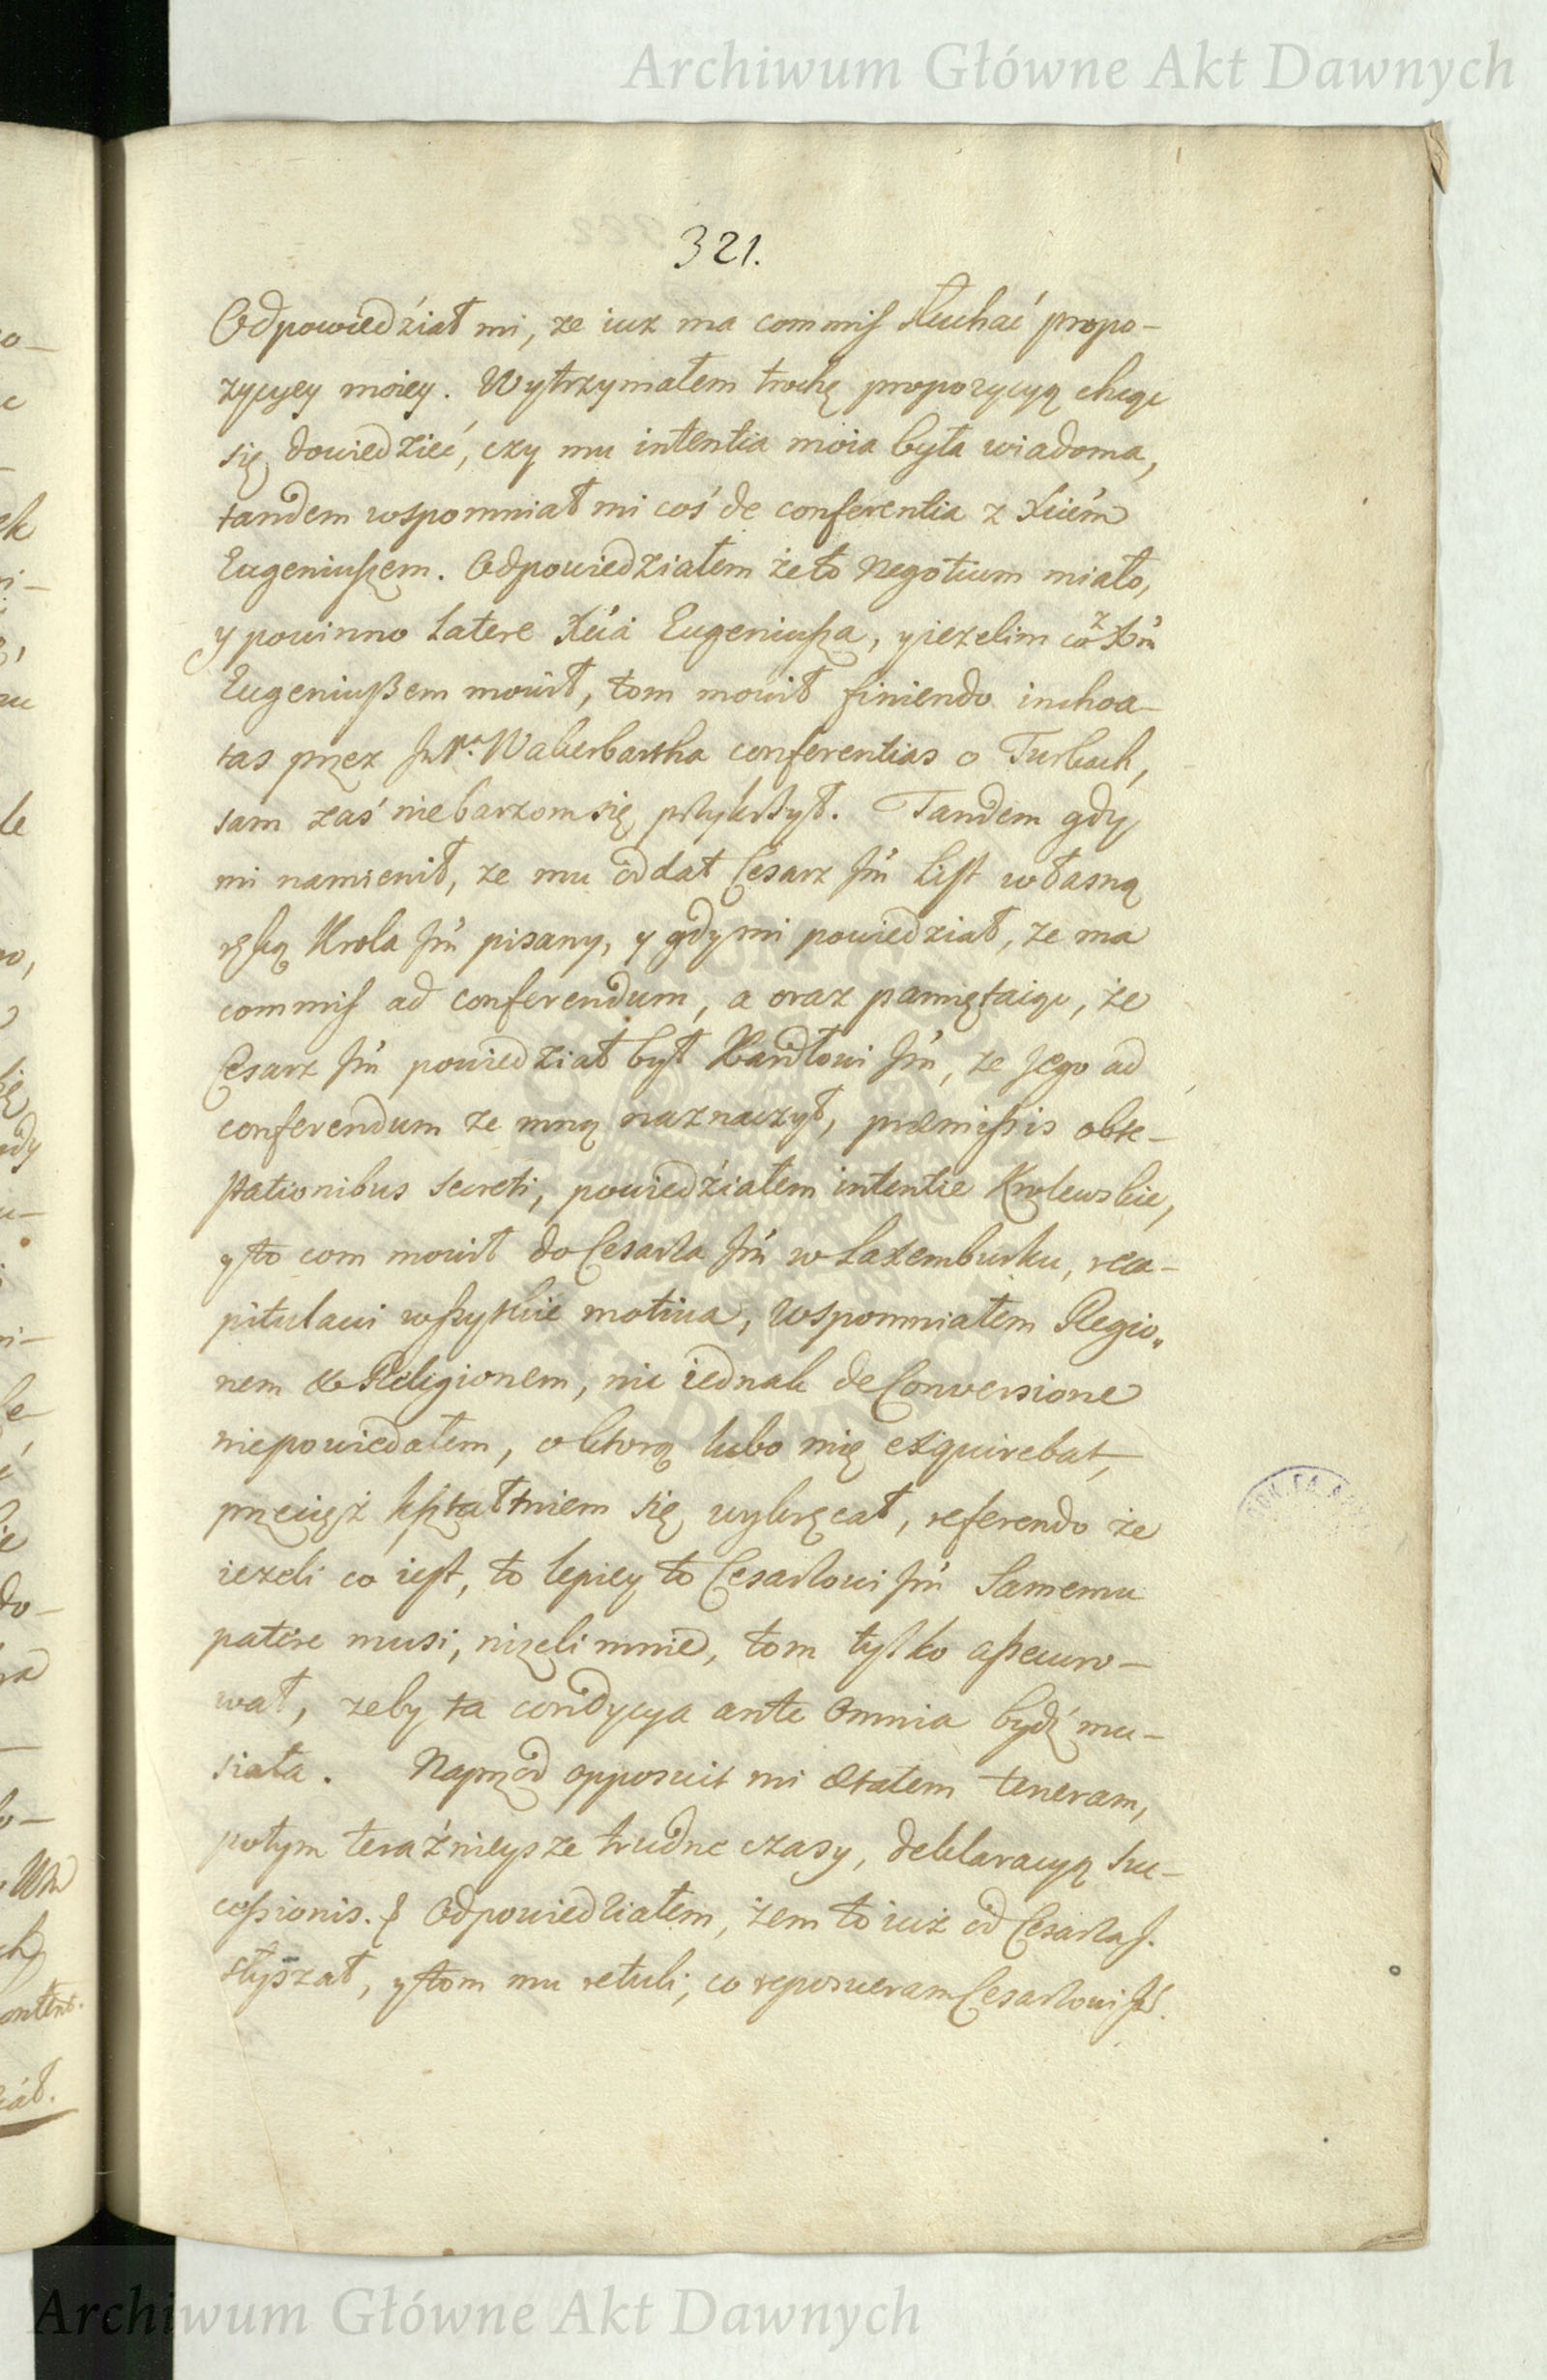 Archiwum Główne Akt Dawnych
321.
Odpowiedźiał mi, ze iuz ma commiss słuchać propo-
zycyey moiey. Wytrzymałem trochę propozycyą chcąc
się dowiedzieć, czy mu intentia moia była wiadoma,
tandem wspomniał mi coś de conferentia z Xciem
Eugeniuszem. Odpowiedziałem że to Negotium miało,
y powinno latere Xcia Eugeniusza, y iezelim co z Xm
Eugeniuszem mowił, tom mowił finiendo inchoa-
tas przez Wakerbartha conferentias o Turkach,
sam zaś nie barzom się przykrzył. Tandem gdy
mi namienił, ze mu oddał Cesarz Jm list własną
ręką Krola Jm pisany, y gdy mi powiedział, ze ma
commiss ad conferendum, a oraz pamiętaiąc, że
Cesarz Jm powiedział był Jm, ze Jego ad
conferendum ze mną naznaczył, præmissis obte-
stationibus secreti, powiedźiałem intentie Krolewskie,
y to com mowił do Cesarza Jm w Laxemburku, reca-
pitulavi wszystkie motiva, wspomniałem Regio-
nem & Religionem, nic iednak de Conversione
niepowiedałem, o ktorą lubo mię exquirebat,
przecięż kształtniem się wykręcał, referendo że
iezeli co iest, to lepiey to Cesarzowi Jm Samemu
patere musi, nizeli mnie, tom tylko assecuro-
wał, zeby ta condycya ante omnia bydź mu-
siała. Naprzod opposuit mi ætatem teneram,
potym teraźnieysze trudne czasy, deklaracyą suc-
cessionis. & Odpowiedziałem, żem to iuż od Cesarza J.
słyszał, y tom mu retuli, co reposueram Cesarzowi Jm.
Archiwum Główne Akt Dawnych